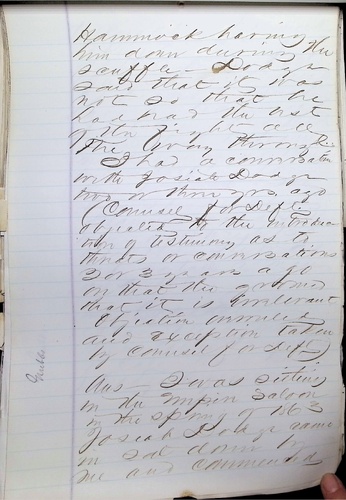 Hammock having
him down during the
scuffle – Dodge
said that it was
not so that he
had had the best
of the fight all
the way through
I had a conversation
with Josiah Dodge
two or three yrs. ago
(Counsel for Deft
objected to the introduc
tion of testimony as to
threats or conversations
2 or 3 years ago
on the ground
that it is irrelevant
Objection overruled
and exception taken
by counsel for deft)
Ans – I was sitting
in the Empire Saloon
in the spring of 1863
Josiah Dodge came
in sat down by
me and commenced
Grubbs